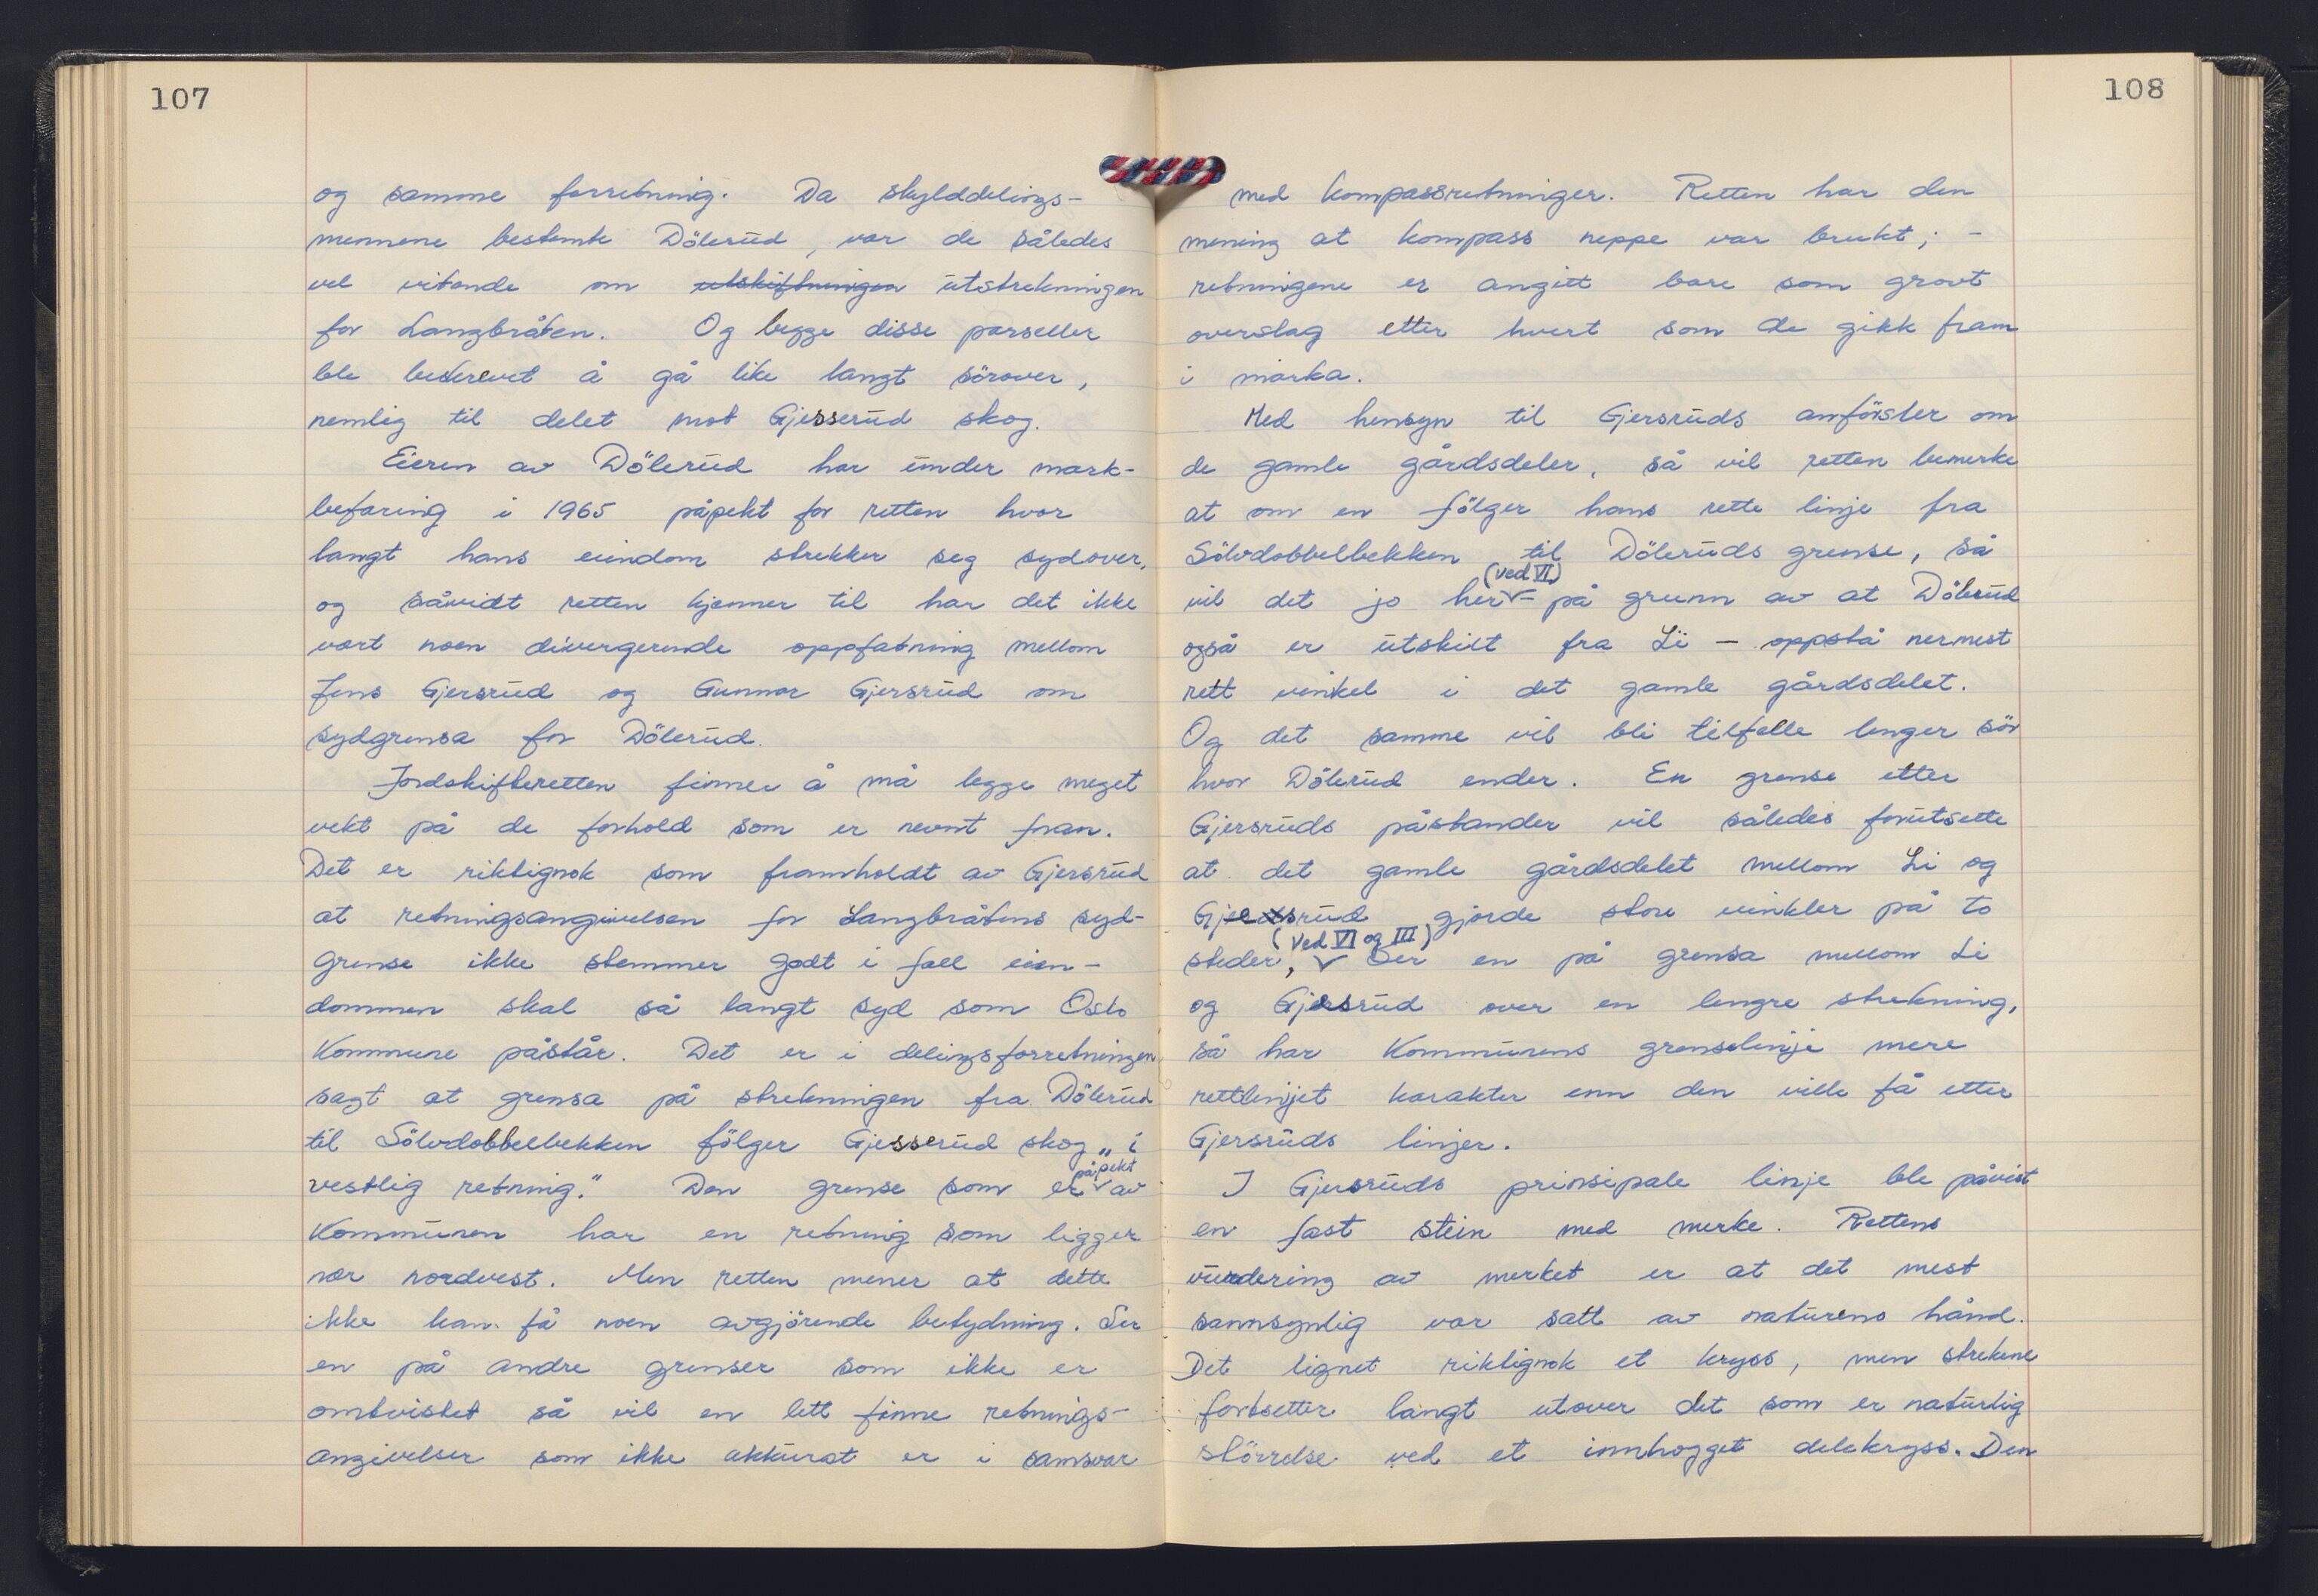 107
og samme forretning. Da skylddelings-
mennene bestemte Dölerud, var de således
vel vitende om utskiftningen utstrekningen
for Langbråten. Og begge disse parseller
ble beskrevet å gå like langt sörover,
nemlig til delet mot Gjesserud skog.
Eieren av Dölerud har under mark-
befaring i 1965 påpekt for retten hvor
langt hans eiendom strekker seg sydover,
og såvidt retten kjenner til har det ikke
vært noen divergerende oppfatning mellom
Jens Gjersrud og Gunnar Gjersrud om
sydgrensa for Dölerud.
Jordskifteretten finner å må legge meget
vekt på de forhold som er nevnt foran.
Det er riktignok som framholdt av Gjersrud
at retningsangivelsen for Langbråtens syd-
grense ikke stemmer godt i fall eien-
dommen skal så langt syd som Oslo
Kommune påstår. Det er i delingsforretningen
sagt at grensa på strekningen fra Dölerud
til Sölvdobbelbekken fölger Gjesserud skog „i
vestlig retning." Den grense som er påpekt av
Kommunen har en retning som ligger
nær nordvest. Men retten mener at dette
ikke kan få noen avgjörende betydning. Ser
en på andre grenser som ikke er
omtvistet så vil en lett finne retnings-
angivelser som ikke akkurat er i samsvar
108
med kompassretninger. Retten har den
mening at kompass neppe var brukt; -
retningene er angitt bare som grovt
overslag etter hvert som de gikk fram
i marka.
Med hensyn til Gjersruds anförsler om
de gamle gårdsdeler, så vil retten bemerke
at om en fölger hans rette linje fra
Sölvdobbelbekken til Döleruds grense, så
vil det jo her (ved VI) - på grunn av at Dölerud
også er utskilt fra Li - oppstå nermest
rett vinkel i det gamle gårdsdelet.
Og det samme vil bli tilfelle lenger sör
hvor Dölerud ender. En grense etter
Gjersruds påstander vil således forutsette
at det gamle gårdsdelet mellom Li og
Gjersrud gjorde store vinkler på to
steder, (Ved VI og III) Ser en på grensa mellom Li
og Gjersrud over en lengre strekning,
så har Kommunens grenselinje mere
rettlinjet karakter enn den ville få etter
Gjersruds linjer.
I Gjersruds prinsipale linje ble påvist
en fast stein med merke. Rettens
vurdering av merket er at det mest
sannsynlig var satt av naturens hånd.
Det lignet riktignok et kryss, men strekene
fortsetter langt utover det som er naturlig
störrelse ved et innhogget delekryss. Den